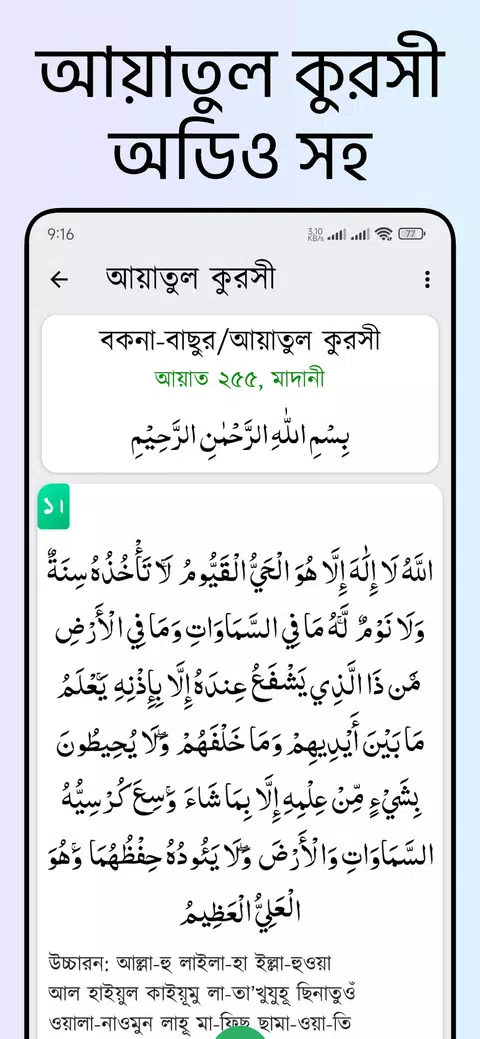 আয়াতুল কুরসী
অডিও সহ
9:16
3.10
KB/s
77
আয়াতুল কুরসী
বকনা-বাছুর/আয়াতুল কুরসী
আয়াত ২৫৫, মাদানী
بِسْمِ اللّٰهِ الرَّحْمٰنِ الرَّحِيْمِ
১।
اللَّهُ لَا إِلَٰهَ إِلَّا هُوَ الْحَيُّ الْقَيُّومُ ۚ لَا تَأْخُذُهُ سِنَةٌ
وَلَا نَوْمٌ ۚ لَّهُ مَا فِي السَّمَاوَاتِ وَمَا فِي الْأَرْضِ ۗ
مَن ذَا الَّذِي يَشْفَعُ عِندَهُ إِلَّا بِإِذْنِهِ ۚ يَعْلَمُ
مَا بَيْنَ أَيْدِيهِمْ وَمَا خَلْفَهُمْ ۖ وَلَا يُحِيطُونَ
بِشَيْءٍ مِّنْ عِلْمِهِ إِلَّا بِمَا شَاءَ ۚ وَسِعَ كُرْسِيُّهُ
السَّمَاوَاتِ وَالْأَرْضَ ۖ وَلَا يَئُودُهُ حِفْظُهُمَا ۚ وَهُوَ
الْعَلِيُّ الْعَظِيمُ
উচ্চারন: আল্লা-হু লাইলা-হা ইল্লা-হুওয়া
আল হাইয়ুল কাইয়ূমু লা-তা’খুযুহূ ছিনাতুওঁ
ওয়ালা-নাওমুন লাহূ মা-ফিছ ছামা-ওয়া-তি